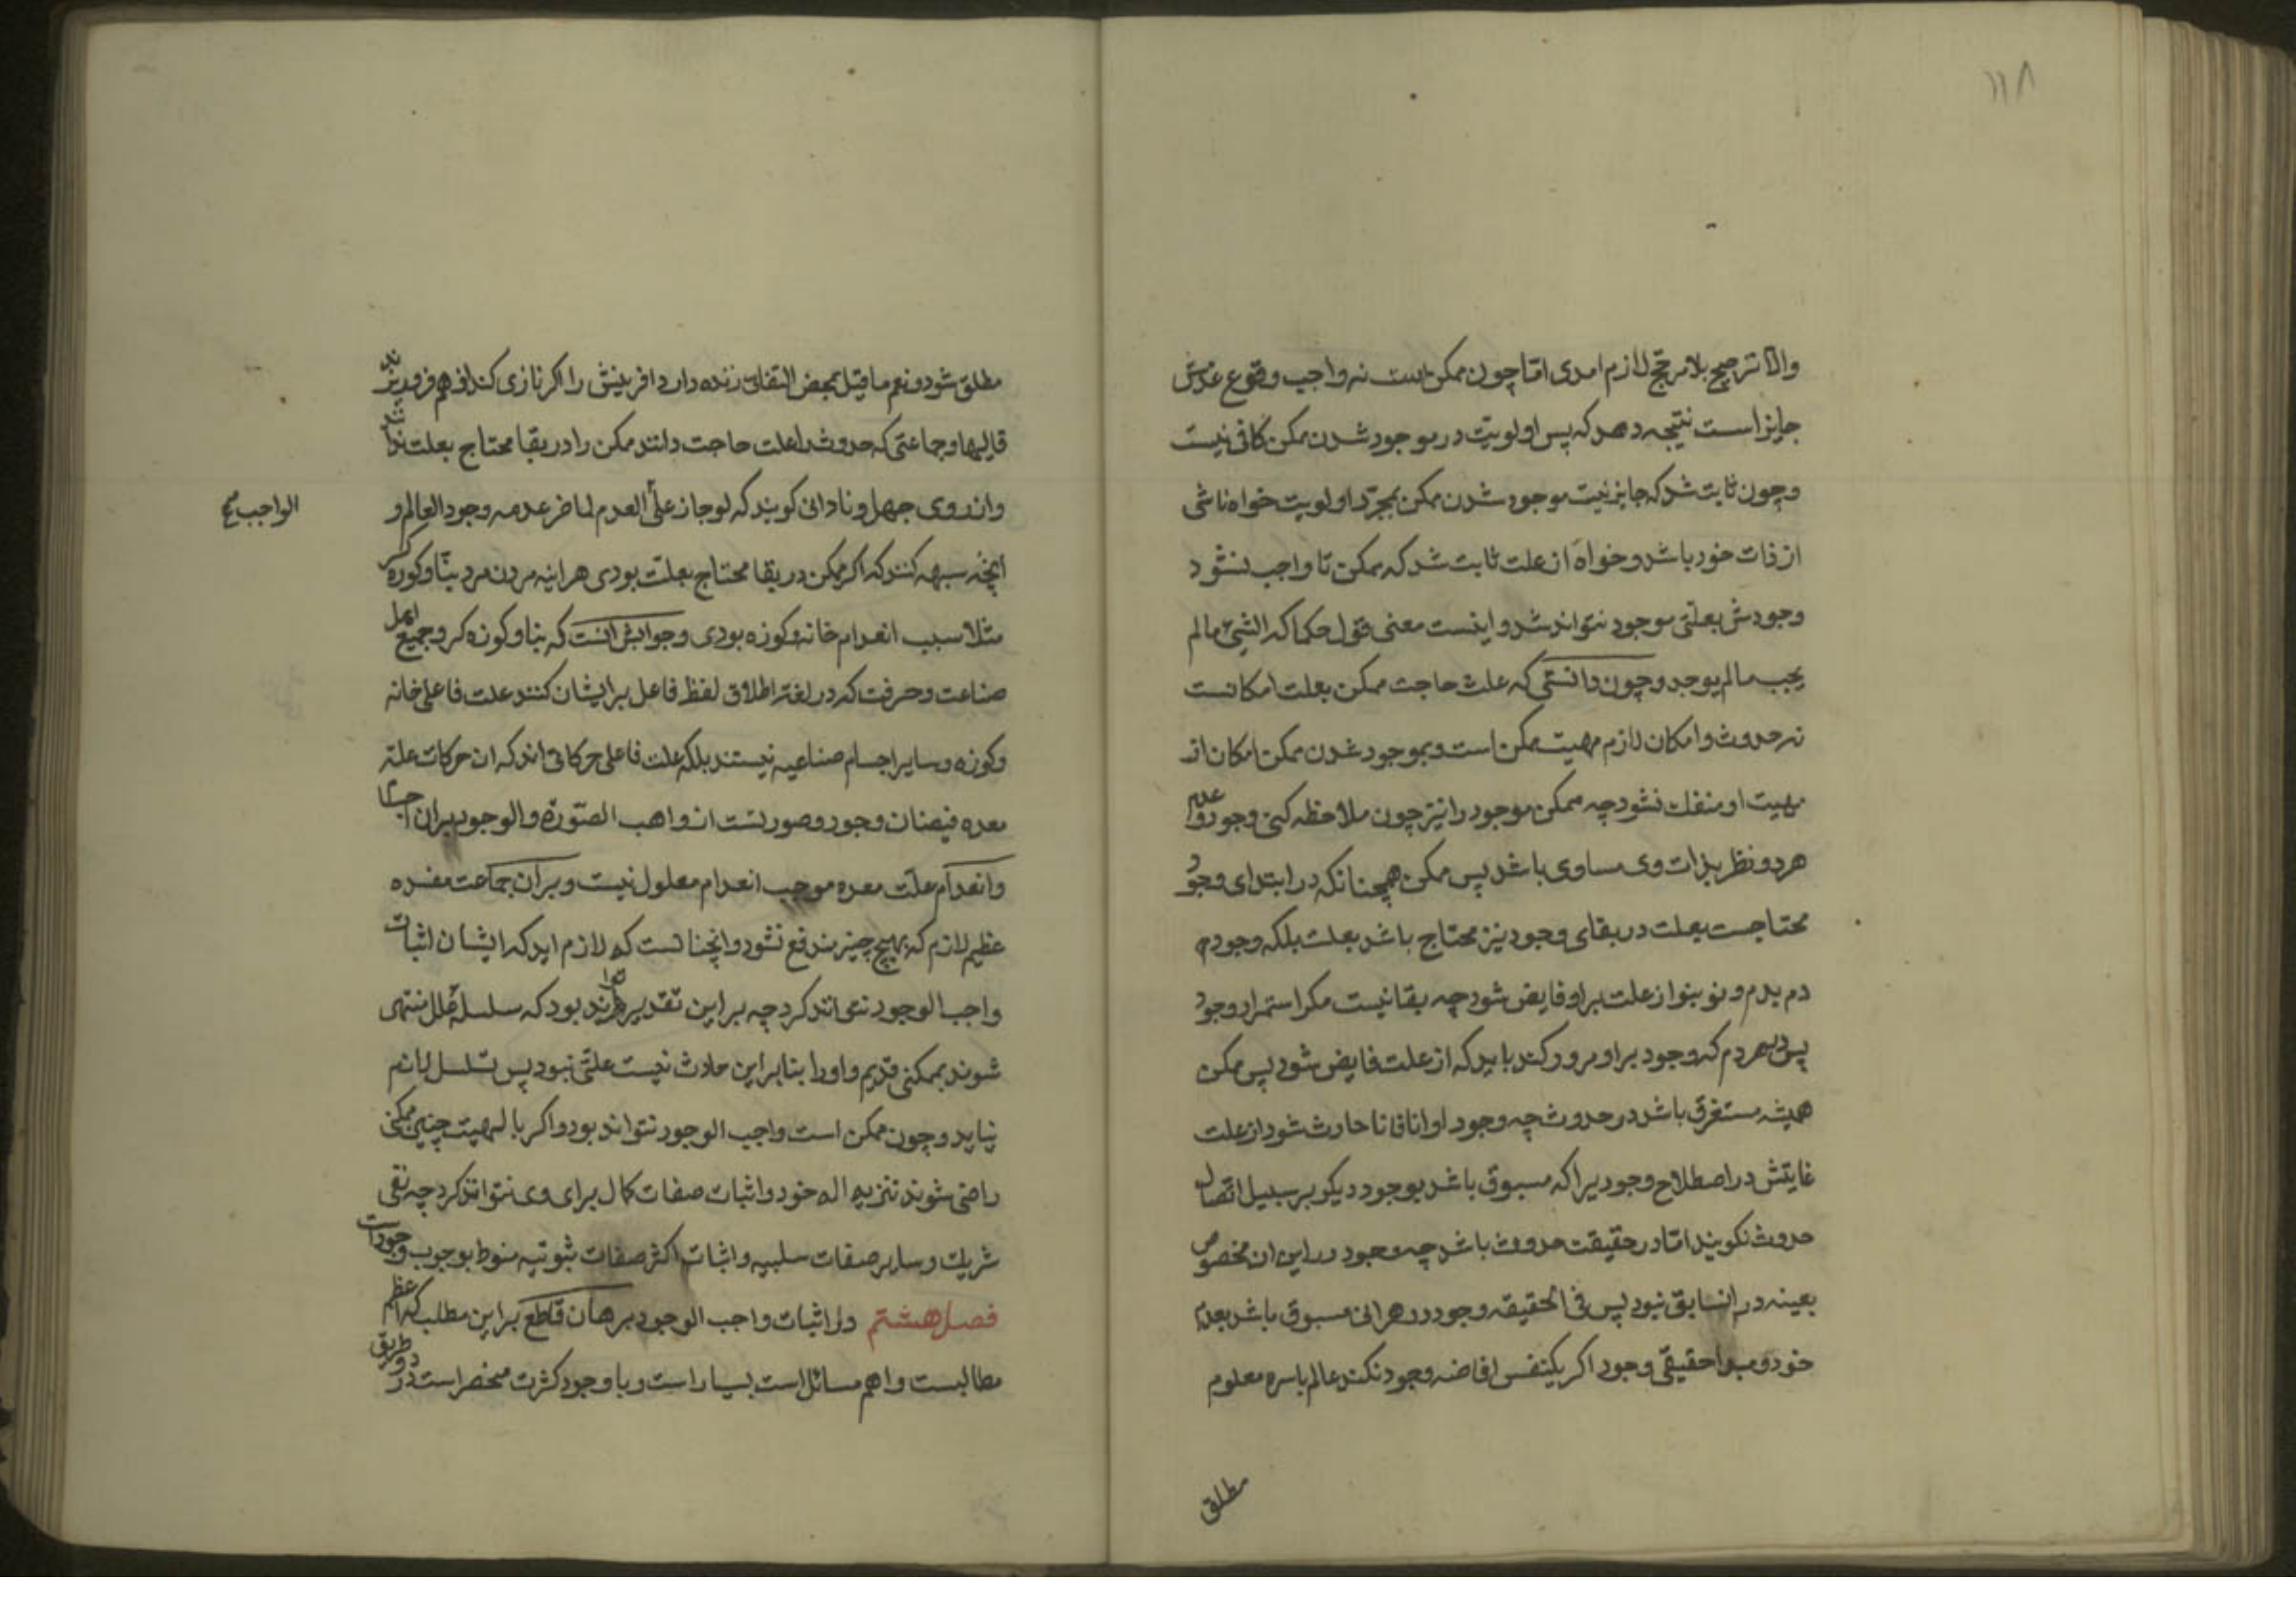 ۱۱۸
والا ترجیح بلا مرجح لازم امدی اما چون ممکن است نه واجب وقوع عدمش
جایز است نتیجه دهد که پس اولویت در موجود شدن ممکن کافی نیست
و چون ثابت شد که جایز نیست موجود شدن ممکن بمجرد اولویت خواه ناشی
از ذات خود باشد و خواه از علت ثابت شد که ممکن تا واجب نشود
وجودش بعلتی موجود نتواند شد و اینست معنی قول حکما که الشیٔ مالم
یجب مالم یوجد و چون دانستی که علت حاجت ممکن بعلت امکانست
نه حدوث و امکان لازم مهیت ممکن است و بموجود شدن ممکن امکان از
مهیت او منفک نشود چه ممکن موجود را نیز چون ملاحظه کنی وجود و عدم
هر دو نظر بذات وی مساوی باشد پس ممکن همچنانکه در ابتدای وجود
محتاجست بعلت در بقای وجود نیز محتاج باشد بعلت بلکه وجود
دم بدم و نو بنو از علت براو فایض شود چه بقا نیست مکر استمرار وجود
پس هر دم که وجود براو مرور کند باید که از علت فایض شود پس ممکن
همیشه مستغرق باشد در حدوث چه وجود او انا فانا حادث شود از علت
غایتش در اصطلاح وجودیرا که مسبوق باشد بوجود دیکر بر سبیل اتصال
حدوث نکویند اما در حقیقت حدوث باشد چه وجود در این ان مخصوص
بعینه در ان سابق نبود پس فی الحقیقه وجود در هر انی مسبوق باشد بعدم
خود و حقیقی وجود اکر یکنفس افاضه وجود نکند عالم باسره معلوم
مطلق
مطلق شود و نعم ما قیل بمحض التفاتی زنده دارد افرینش را اکر نازی کند از هم فروریزند
قالبها و جماعتی که حدوث را علت حاجت دانند ممکن را در بقا محتاج بعلت ندانند
و از روی جهل و نادانی کویند که لو جاز علی العدم لما ضر عدمه وجود العالم و
الواجب صح
انچه شبهه کنند که اکر ممکن در بقا محتاج بعلت بودی هراینه مردن مرد بنا و کوزه کر
مثلا سبب انعدام خانه و کوزه بودی و جوابش انست که بنا و کوزه کر و جمیع اهل
صناعت و حرفت که در لغة اطلاق لفظ فاعل بر ایشان کنند علت فاعلی خانه
و کوزه و سایر اجسام صناعیه نیستند بلکه علت فاعلی حرکاتی اند که ان حرکات علة
معده فیضان وجود و صورتست از واهب الصورة و الوجود بران اجسام
و انعدام علت معده موجب انعدام معلول نیست و بر آن جماعت مفسده
عظیم لازم که بهیچ چیز مندفع نشود و انچنانست که لازم اید که ایشان اثبات
واجب الوجود نتوانند کرد چه براین تقدیر بود که سلسله علل منتهی
شوند بممکنی قدیم و او را بنابراین حادث نیست علتی نبود پس تسلسل لازم
نیاید و چون ممکن است واجب الوجود نتواند بود و اکر بالهیت چنین ممکنی
راضی شوند تنزیه اله خود و اثبات صفات کمال برای وی نتوانند کرد چه نفی
شریک و سایر صفات سلبیه و اثبات اکثر صفات ثبوتیه منوط بوجوب وجودات
فصل هشتم در اثبات واجب الوجود برهان قاطع بر این مطلب که اعظم
مطالبست و اهم مسائل است بسیار است و با وجود کثرت منحصر است در دو طریق